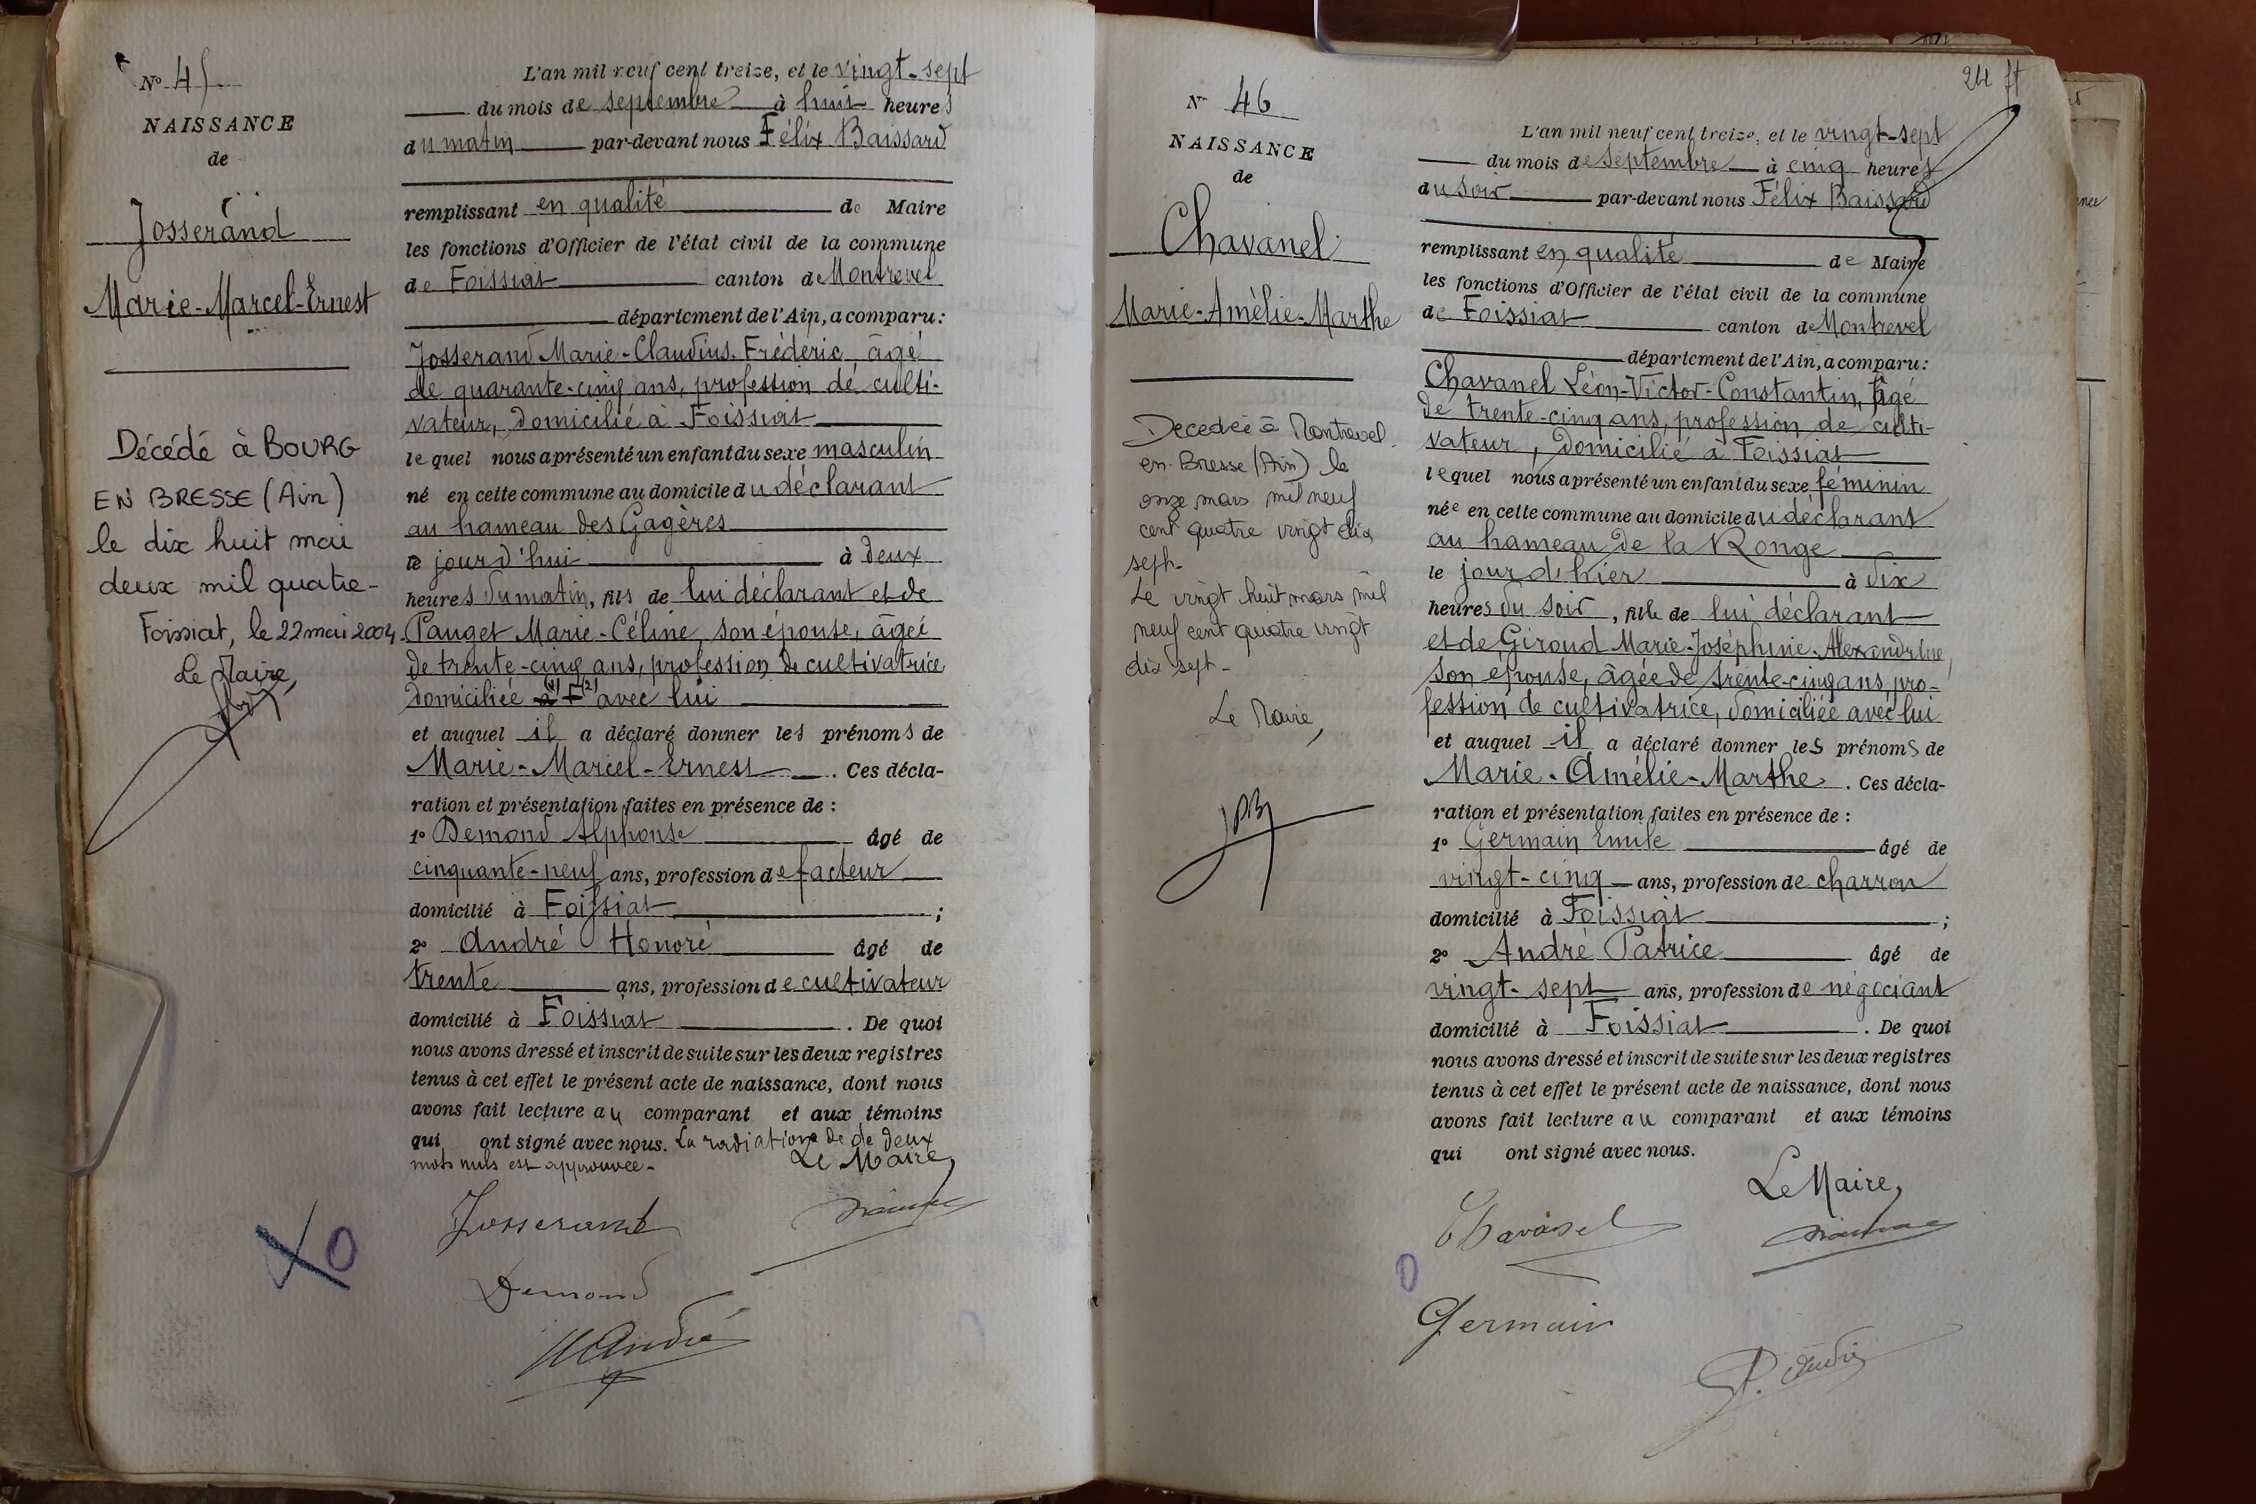 N° 45
NAISSANCE
de
Josserand
Marie-Marcel-Ernest
Décédé à BOURG
EN BRESSE (Ain)
le dix huit mai
deux mil quatre-
Foissiat, le 22 mai 2004.
Le Maire,
L'an mil neuf cent treize, et le vingt-sept
du mois de septembre à huit heures
du matin par-devant nous Félix Baissard
remplissant en qualité de Maire
les fonctions d'Officier de l'état civil de la commune
de Foissiat canton de Montrevel
département de l'Ain, a comparu :
Josserand Marie-Claudius-Frédéric âgé
de quarante-cinq ans, profession de culti-
vateur, domicilié à Foissiat
lequel nous a présenté un enfant du sexe masculin
né en cette commune au domicile du déclarant
au hameau des Gagères
ce jour d'hui à deux
heures du matin, fils de lui déclarant et de
Pauget Marie-Céline, son épouse, âgée
de trente-cinq ans, profession de cultivatrice
domiciliée à (1) F (2) avec lui
et auquel il a déclaré donner les prénoms de
Marie-Marcel-Ernest. Ces décla-
ration et présentation faites en présence de :
1° Demond Alphonse âgé de
cinquante-neuf ans, profession de facteur
domicilié à Foissiat ;
2° André Honoré âgé de
trente ans, profession de cultivateur
domicilié à Foissiat. De quoi
nous avons dressé et inscrit de suite sur les deux registres
tenus à cet effet le présent acte de naissance, dont nous
avons fait lecture au comparant et aux témoins
qui ont signé avec nous. La radiation de de deux
mots nuls est approuvée-
Le Maire,
Josserand
Demond
H André
O
24
N° 46
NAISSANCE
de
Chavanel
Marie-Amélie-Marthe
Décédée à Montrevel-
en-Bresse (Ain) le
onze mars mil neuf
cent quatre vingt dix
sept-
Le vingt huit mars mil
neuf cent quatre vingt
dix sept-
Le Maire,
L'an mil neuf cent treize, et le vingt-sept
du mois de septembre à cinq heures
du soir par-devant nous Félix Baissard
remplissant en qualité de Maire
les fonctions d'Officier de l'état civil de la commune
de Foissiat canton de Montrevel
département de l'Ain, a comparu :
Chavanel Léon-Victor-Constantin, âgé
de trente-cinq ans, profession de culti-
vateur, domicilié à Foissiat
lequel nous a présenté un enfant du sexe féminin
née en cette commune au domicile du déclarant
au hameau de la Ronge
le jour d'hier à dix
heures du soir, fille de lui déclarant
et de Giroud Marie-Joséphine-Alexandrine,
son épouse, âgée de trente-cinq ans, pro-
fession de cultivatrice, domiciliée avec lui
et auquel il a déclaré donner les prénoms de
Marie-Amélie-Marthe. Ces décla-
ration et présentation faites en présence de :
1° Germain Emile âgé de
vingt-cinq ans, profession de charron
domicilié à Foissiat ;
2° André Patrice âgé de
vingt-sept ans, profession de négociant
domicilié à Foissiat. De quoi
nous avons dressé et inscrit de suite sur les deux registres
tenus à cet effet le présent acte de naissance, dont nous
avons fait lecture au comparant et aux témoins
qui ont signé avec nous.
Le Maire,
Chavanel
O
Germain
P. André